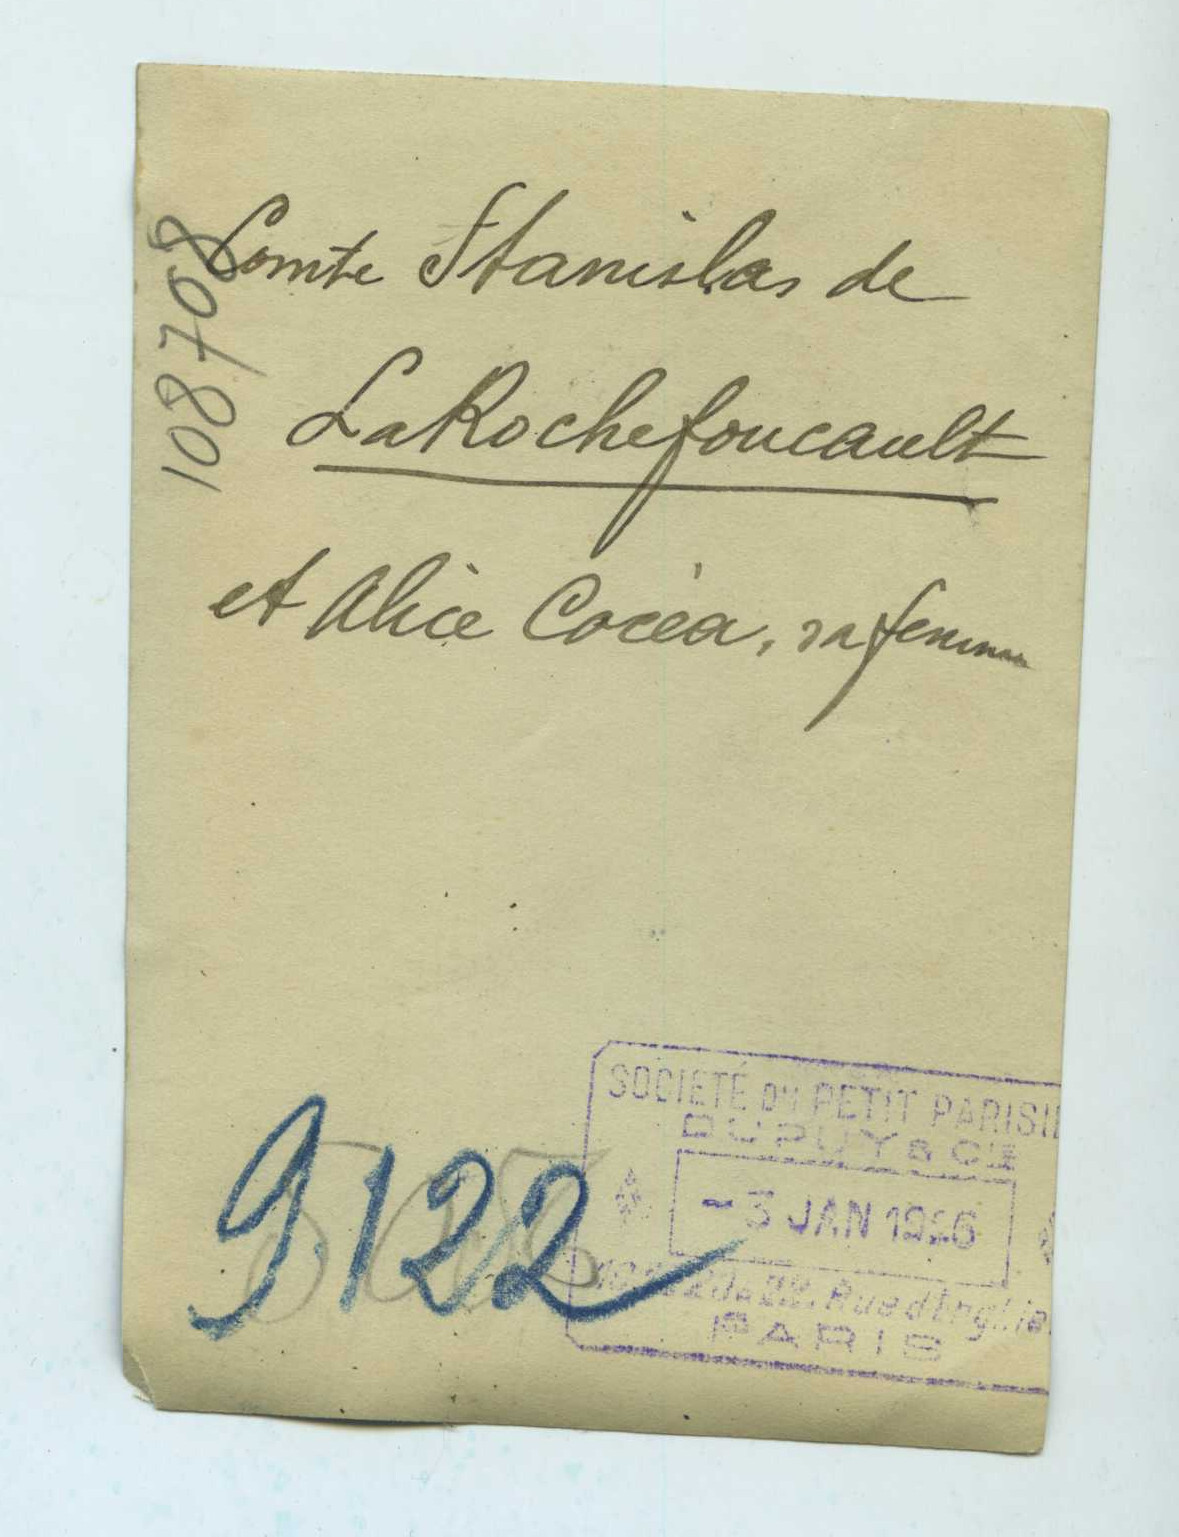 108708
Comte Stanislas de
LaRochefoucault
et Alice Cocéa, sa femme
9122
SOCIETÉ DU PETIT PARISIE
DUPUY & CIE
-3 JAN 1926
Rue d'Enghie
PARIS